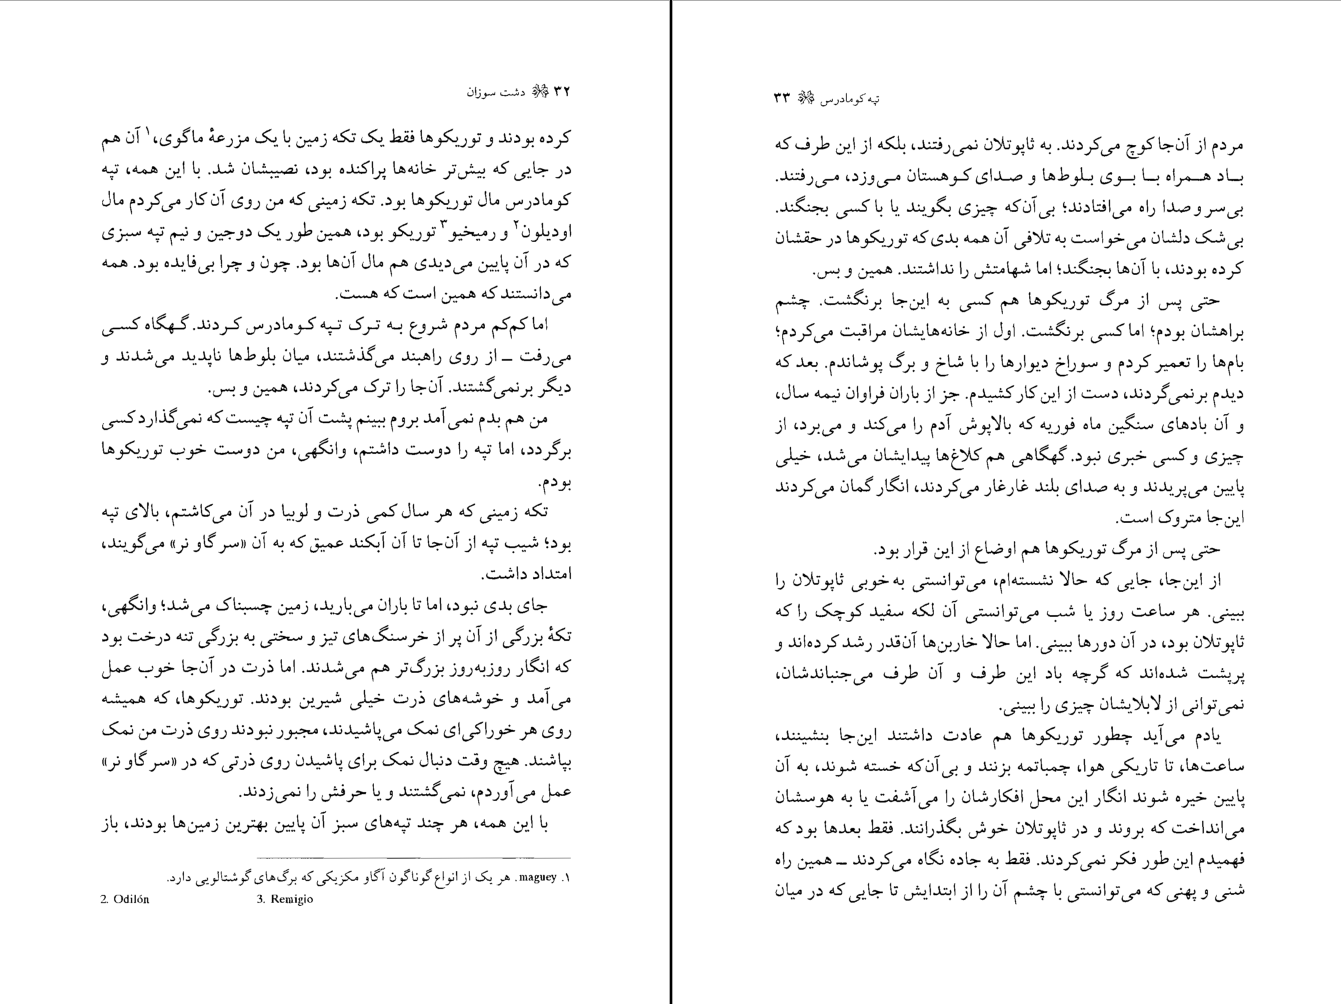 ۳۲ دشت سوزان
کرده بودند و توریکوها فقط یک تکه زمین با یک مزرعهٔ ماگوی،۱ آن هم
در جایی که بیش‌تر خانه‌ها پراکنده بود، نصیبشان شد. با این همه، تپه
کومادرس مال توریکوها بود. تکه زمینی که من روی آن کار می‌کردم مال
اودیلون۲ و رمیخیو۳ توریکو بود، همین طور یک دوجین و نیم تپه سبزی
که در آن پایین می‌دیدی هم مال آن‌ها بود. چون و چرا بی‌فایده بود. همه
می‌دانستند که همین است که هست.
اما کم‌کم مردم شروع به ترک تپه کومادرس کردند. گهگاه کسی
می‌رفت ــ از روی راهبند می‌گذشتند، میان بلوط‌ها ناپدید می‌شدند و
دیگر برنمی‌گشتند. آن‌جا را ترک می‌کردند، همین و بس.
من هم بدم نمی‌آمد بروم ببینم پشت آن تپه چیست که نمی‌گذارد کسی
برگردد، اما تپه را دوست داشتم، وانگهی، من دوست خوب توریکوها
بودم.
تکه زمینی که هر سال کمی ذرت و لوبیا در آن می‌کاشتم، بالای تپه
بود؛ شیب تپه از آن‌جا تا آن آبکند عمیق که به آن «سر گاو نر» می‌گویند،
امتداد داشت.
جای بدی نبود، اما تا باران می‌بارید، زمین چسبناک می‌شد؛ وانگهی،
تکهٔ بزرگی از آن پر از خرسنگ‌های تیز و سختی به بزرگی تنه درخت بود
که انگار روزبه‌روز بزرگ‌تر هم می‌شدند. اما ذرت در آن‌جا خوب عمل
می‌آمد و خوشه‌های ذرت خیلی شیرین بودند. توریکوها، که همیشه
روی هر خوراکی‌ای نمک می‌پاشیدند، مجبور نبودند روی ذرت من نمک
بپاشند. هیچ وقت دنبال نمک برای پاشیدن روی ذرتی که در «سر گاو نر»
عمل می‌آوردم، نمی‌گشتند و یا حرفش را نمی‌زدند.
با این همه، هر چند تپه‌های سبز آن پایین بهترین زمین‌ها بودند، باز
۱. maguey. هر یک از انواع گوناگون آگاو مکزیکی که برگ‌های گوشتالویی دارد.
2. Odilón 3. Remigio
تپه کومادرس ۳۳
مردم از آن‌جا کوچ می‌کردند. به ثاپوتلان نمی‌رفتند، بلکه از این طرف که
باد همراه با بوی بلوط‌ها و صدای کوهستان می‌وزد، می‌رفتند.
بی‌سر و صدا راه می‌افتادند؛ بی‌آن‌که چیزی بگویند یا با کسی بجنگند.
بی‌شک دلشان می‌خواست به تلافی آن همه بدی که توریکوها در حقشان
کرده بودند، با آن‌ها بجنگند؛ اما شهامتش را نداشتند. همین و بس.
حتی پس از مرگ توریکوها هم کسی به این‌جا برنگشت. چشم
براهشان بودم؛ اما کسی برنگشت. اول از خانه‌هایشان مراقبت می‌کردم؛
بام‌ها را تعمیر کردم و سوراخ دیوارها را با شاخ و برگ پوشاندم. بعد که
دیدم برنمی‌گردند، دست از این کار کشیدم. جز از باران فراوان نیمه سال،
و آن بادهای سنگین ماه فوریه که بالاپوش آدم را می‌کند و می‌برد، از
چیزی و کسی خبری نبود. گهگاهی هم کلاغ‌ها پیدایشان می‌شد، خیلی
پایین می‌پریدند و به صدای بلند غارغار می‌کردند، انگار گمان می‌کردند
این‌جا متروک است.
حتی پس از مرگ توریکوها هم اوضاع از این قرار بود.
از این‌جا، جایی که حالا نشسته‌ام، می‌توانستی به خوبی ثاپوتلان را
ببینی. هر ساعت روز یا شب می‌توانستی آن لکه سفید کوچک را که
ثاپوتلان بود، در آن دورها ببینی. اما حالا خاربن‌ها آن‌قدر رشد کرده‌اند و
پرپشت شده‌اند که گرچه باد این طرف و آن طرف می‌جنباندشان،
نمی‌توانی از لابلایشان چیزی را ببینی.
یادم می‌آید چطور توریکوها هم عادت داشتند این‌جا بنشینند،
ساعت‌ها، تا تاریکی هوا، چمباتمه بزنند و بی‌آن‌که خسته شوند، به آن
پایین خیره شوند انگار این محل افکارشان را می‌آشفت یا به هوسشان
می‌انداخت که بروند و در ثاپوتلان خوش بگذرانند. فقط بعدها بود که
فهمیدم این طور فکر نمی‌کردند. فقط به جاده نگاه می‌کردند ــ همین راه
شنی و پهنی که می‌توانستی با چشم آن را از ابتدایش تا جایی که در میان